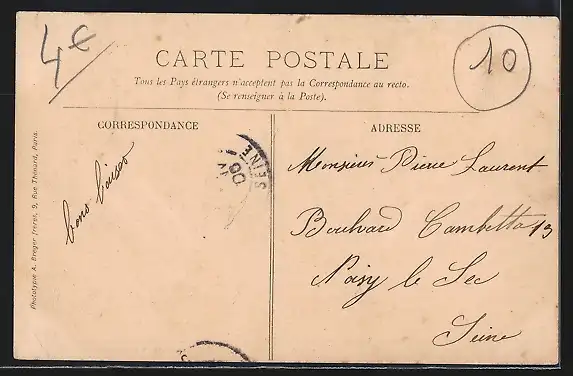 4€
10
CARTE POSTALE
Tous les Pays étrangers n'acceptent pas la Correspondance au recto.
(Se renseigner à la Poste).
CORRESPONDANCE
ADRESSE
bons baisers
SEINE
Monsieur Pierre Laurent
Boulvard Gambetta 13
Noisy le Sec
Seine
Phototypie A. Breger frères, 9, Rue Thénard, Paris.